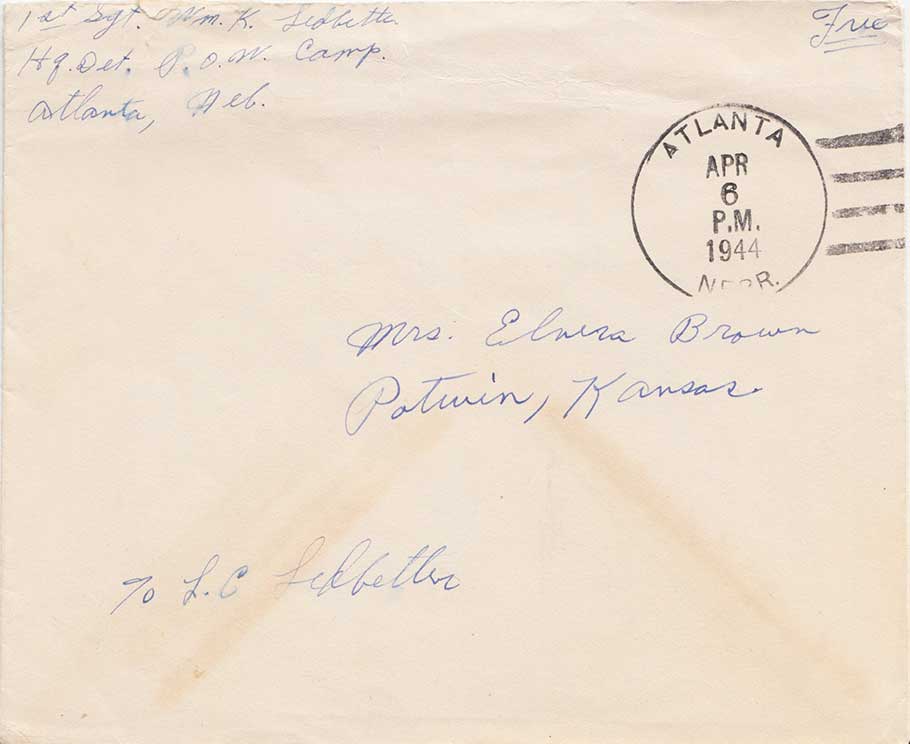 1st Sgt. Wm. K. Ledbetter
Hq. Det. P.O.W. Camp.
Atlanta, Neb.
Free
ATLANTA
APR
6
P.M.
1944
NEBR.
Mrs. Elvera Brown
Potwin, Kansas.
% L.C Ledbetter